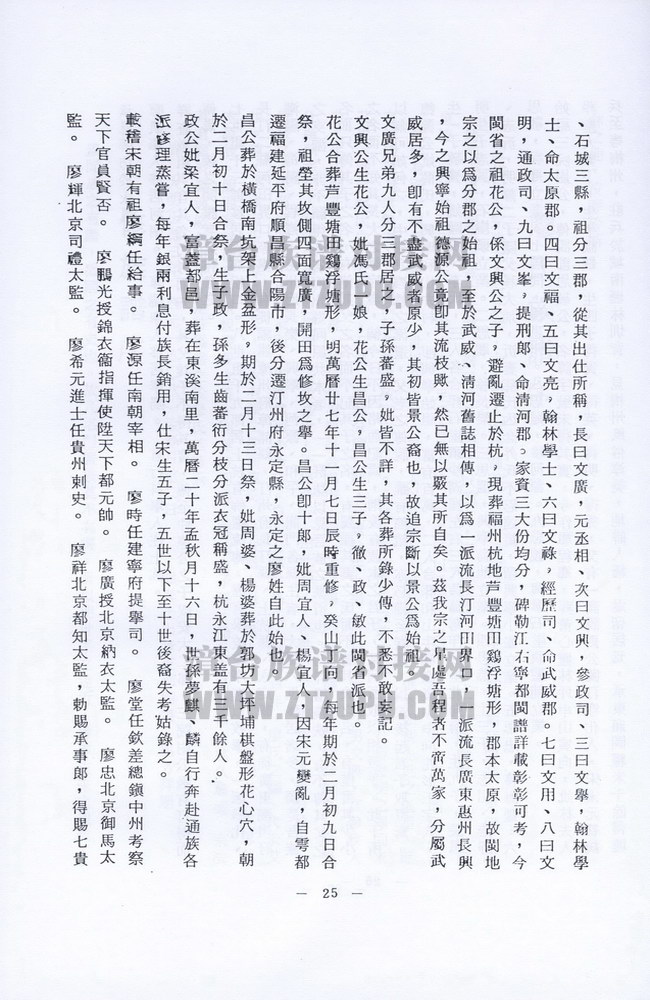 、石城三縣，祖分三郡，從其出仕所稱，長曰文廣，元丞相、次曰文興，參政司、三曰文舉，翰林學
士、命太原郡。四曰文福、五曰文亮，翰林學士、六曰文祿，經歷司、命武威郡。七曰文用、八曰文
明，通政司、九曰文峯，提刑郎、命清河郡。家資三大份均分，碑勒江右寧都閩譜詳載彰彰可考，今
閩省之祖花公，係文興公之子，避亂遷止於杭，現葬福州杭地芦豐塘田鷄浮塘形，郡本太原，故閩地
宗之以為分郡之始祖，至於武威、清河舊誌相傳，以為一派流長汀河田界口，一派流長廣東惠州長興
，今之興寧始祖德源公竟卽其流枝歟，然已無以覈其所自矣。茲我宗之星處吾程者不啻萬家，分屬武
威居多，卽有不盡武威者原少，其初皆景公裔也，故追宗斷以景公為始祖。
文廣兄弟九人分三郡居之，子孫蕃盛，妣皆不詳，其各葬所錄少傳，不悉不敢妄記。
文興公生花公，妣馮氏一娘，花公生昌公，昌公生三子，徹、政、敏此閩省派也。
花公合葬芦豐塘田鷄浮塘形，明萬曆廿七年十一月七日辰時重修，癸山丁向，每年期於二月初九日合
祭，祖塋其坟側四面寬廣，開田為修坟之舉。昌公卽十郎，妣周宜人、楊宜人，因宋元變亂，自雩都
遷福建延平府順昌縣合陽市，後分遷汀州府永定縣，永定之廖姓自此始也。
昌公葬於橫橋南坑架上金盆形，期於二月十三日祭，妣周婆、楊婆葬於郭坊大坪埔棋盤形花心穴，朝
於二月初十日合祭，生子政，孫多生齒蕃衍分枝分派衣冠稱盛，杭永江東盖有三千餘人。
政公妣梁宜人，富蓋都邑，葬在東溪南里，萬曆二十年孟秋月十六日，世孫夢麒、麟自行奔赴通族各
派修理蒸嘗，每年銀兩利息付族長銷用，仕宋生五子，五世以下至十世後裔失考姑錄之。
載稽宋朝有祖廖綱任給事。　廖源任南朝宰相。　廖時任建寧府提舉司。　廖堂任欽差總鎮中州考察
天下官員賢否。　廖鵬光授錦衣衞指揮使陞天下都元帥。　廖廣授北京納衣太監。　廖忠北京御馬太
監。　廖輝北京司禮太監。　廖希元進士任貴州剌史。　廖祥北京都知太監，勅賜承事郎，得賜七貴
— 25 —
章台族谱对接网
WWW.ZTZUPU.COM
章台族谱对接网
WWW.ZTZUPU.COM